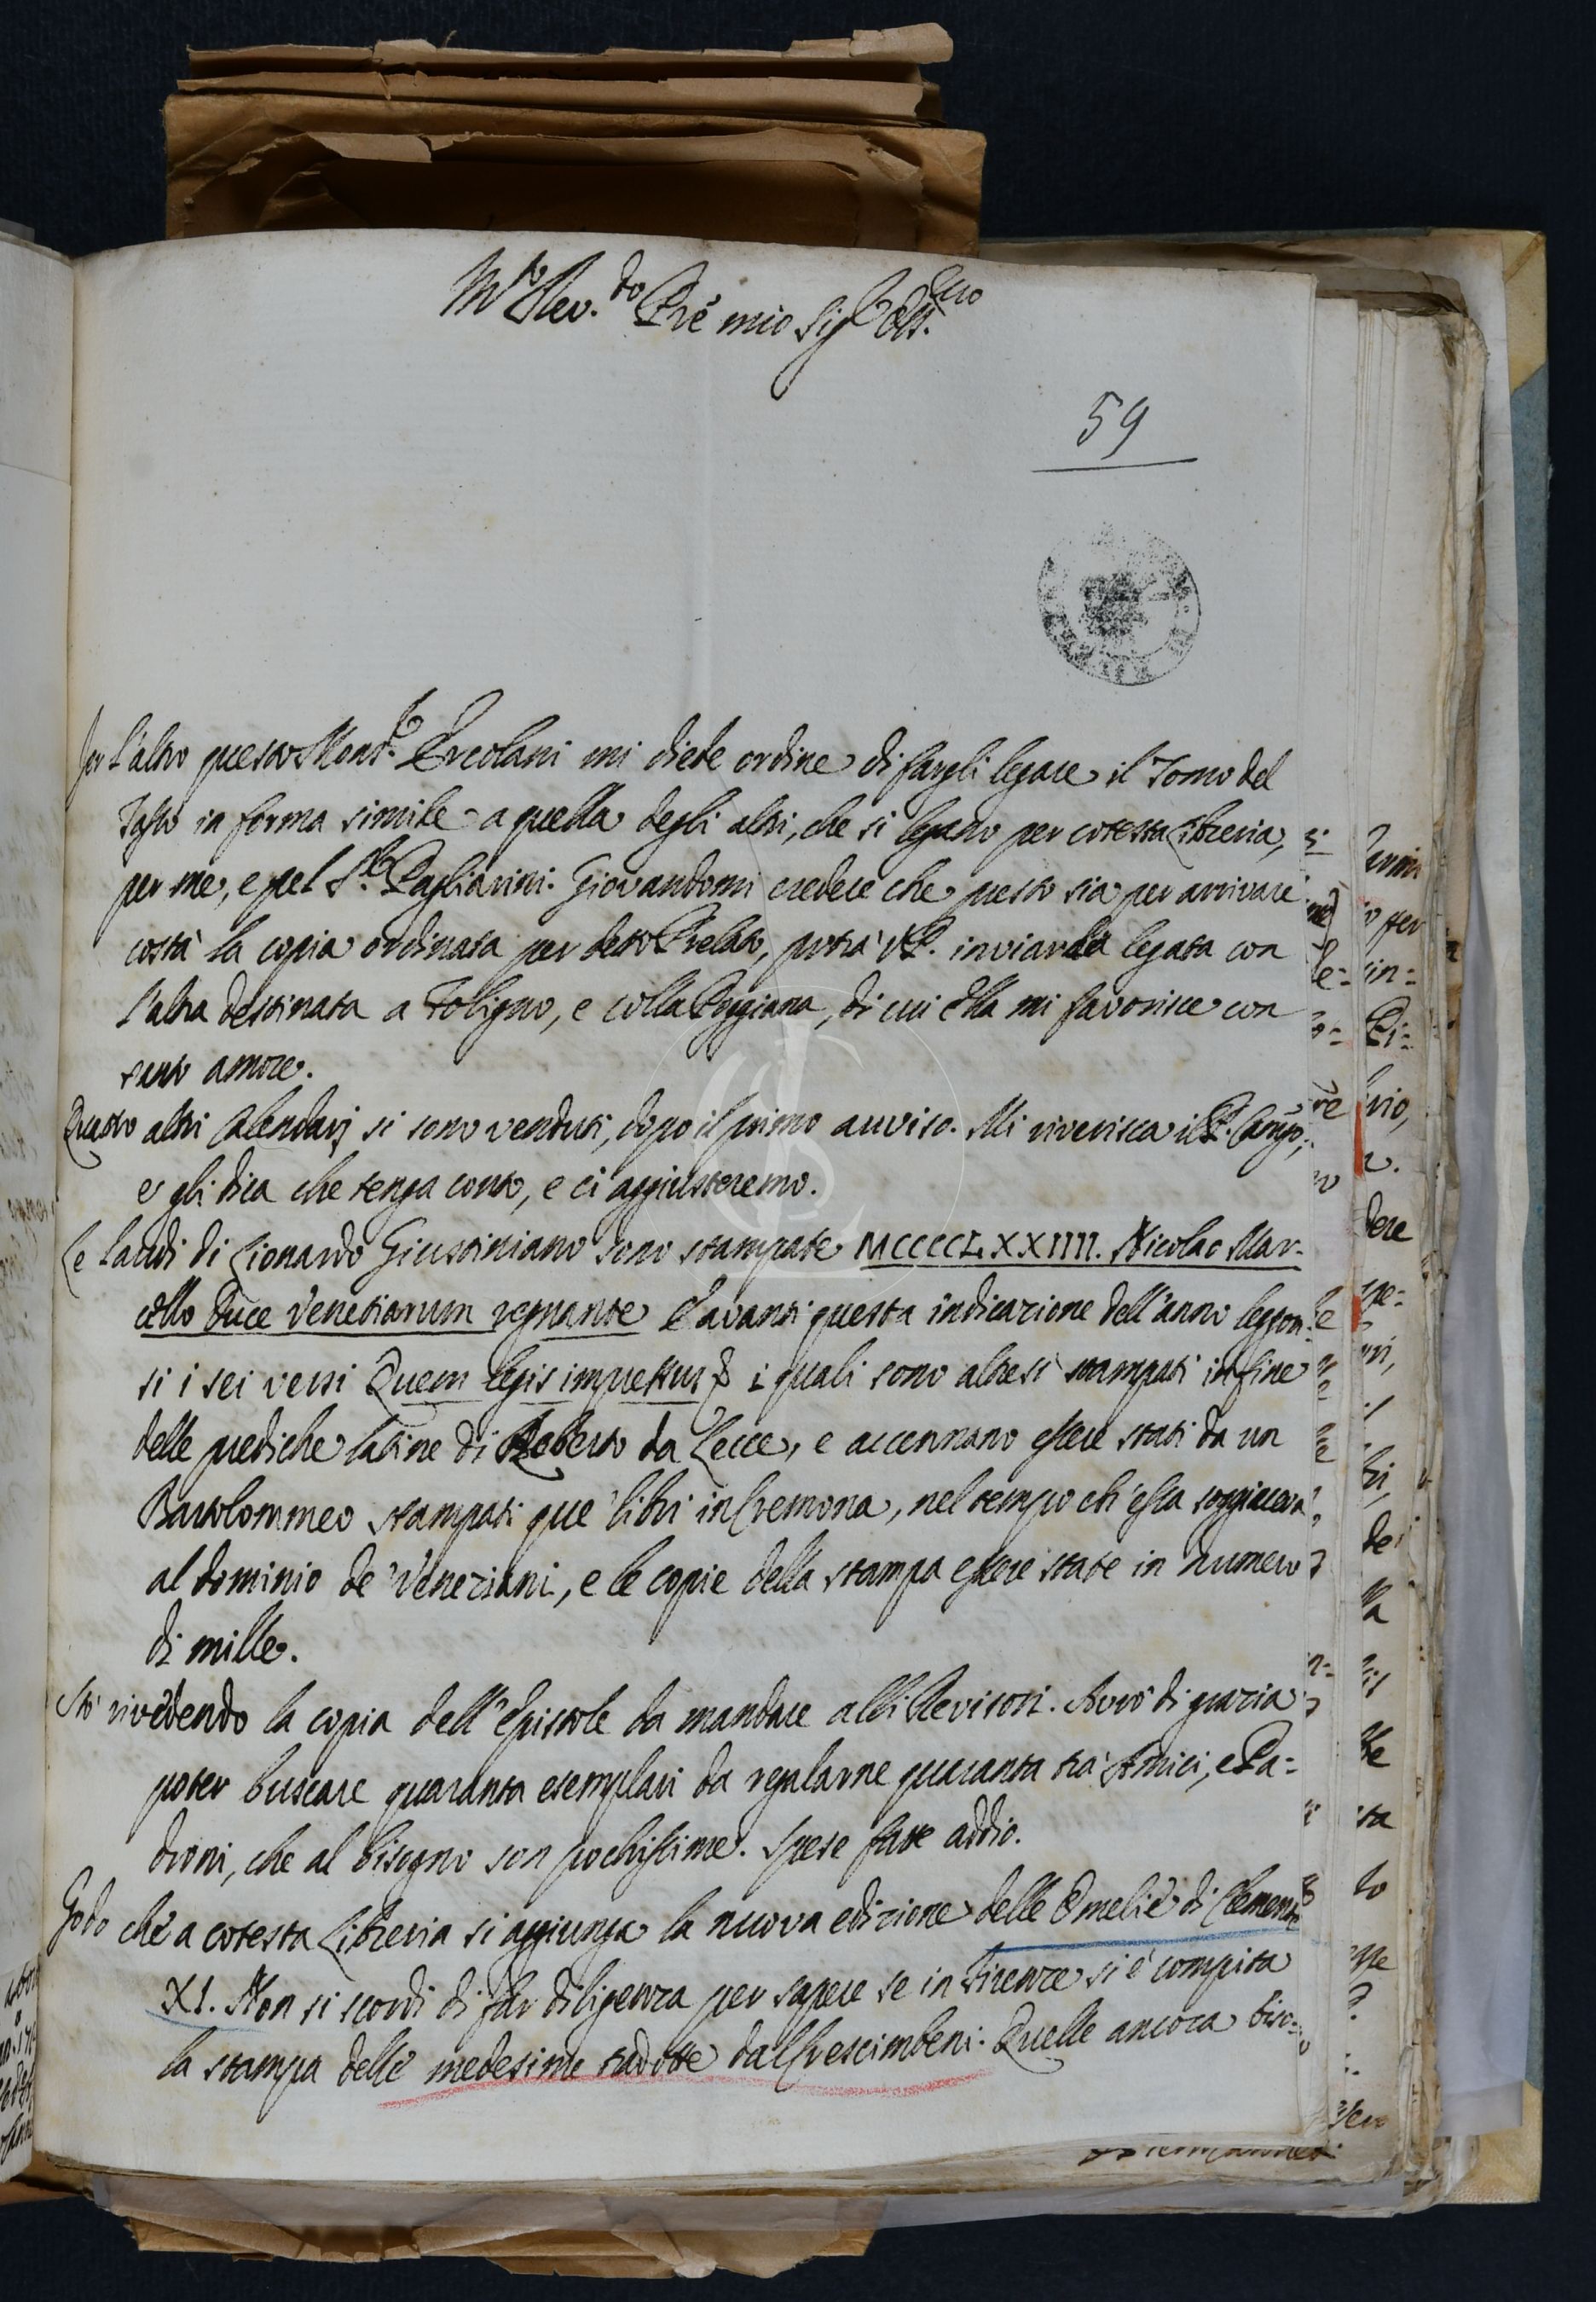 M.to Rev.do Pre mio Sig.r Oss.mo
59
Jer l'altro questo Mons.r Ercolani mi diede ordine di fargli legare il Tomo del
Tasso in forma simile a quella degli altri, che si legano per cotesta Libreria,
per me, e pel S.r Pagliarini. Giovandomi credere che presto sia per arrivare
costà la copia ordinata per detto Prelato, potrà V.P. inviarla legata con
l'altra destinata a Foligno, e colla Poggiana, di cui Ella mi favorisce con
tanto amore.
Quattro altri Calendarj si sono venduti, dopo il primo avviso. Mi riverisca il P.
e gli dica che tenga conto, e ci aggiusteremo.
Le Laudi di Lionardo Giustiniano sono stampate MCCCCLXXIIII. Nicolao Mar-
cello Duce Venetiarum regnante E avanti questa indicazione dell'anno leggon-
si i sei versi Quem legis impressus & i quali sono altresì stampati in fine
delle prediche latine di Roberto da Lecce, e accennano essere stati da un
Bartolommeo stampati que' libri in Cremona, nel tempo ch'essa soggiaceva
al dominio de' Veneziani, e le copie della stampa essere state in numero
di mille.
Stò rivedendo la copia dell'Epistole da mandare alli Revisori. Avrò di grazia
poter buscare quaranta esemplari da regalarne quaranta trà Amici, e Pa=
droni, che al bisogno son pochissime. Spese fatte addio.
Godo che a cotesta Libreria si aggiunga la nuova edizione delle Omelie di Clemente
XI. Non si scordi di far diligenza per sapere se in Firenze si è compita
la stampa delle medesime tradotte dal Crescimbeni. Quelle ancora biso-